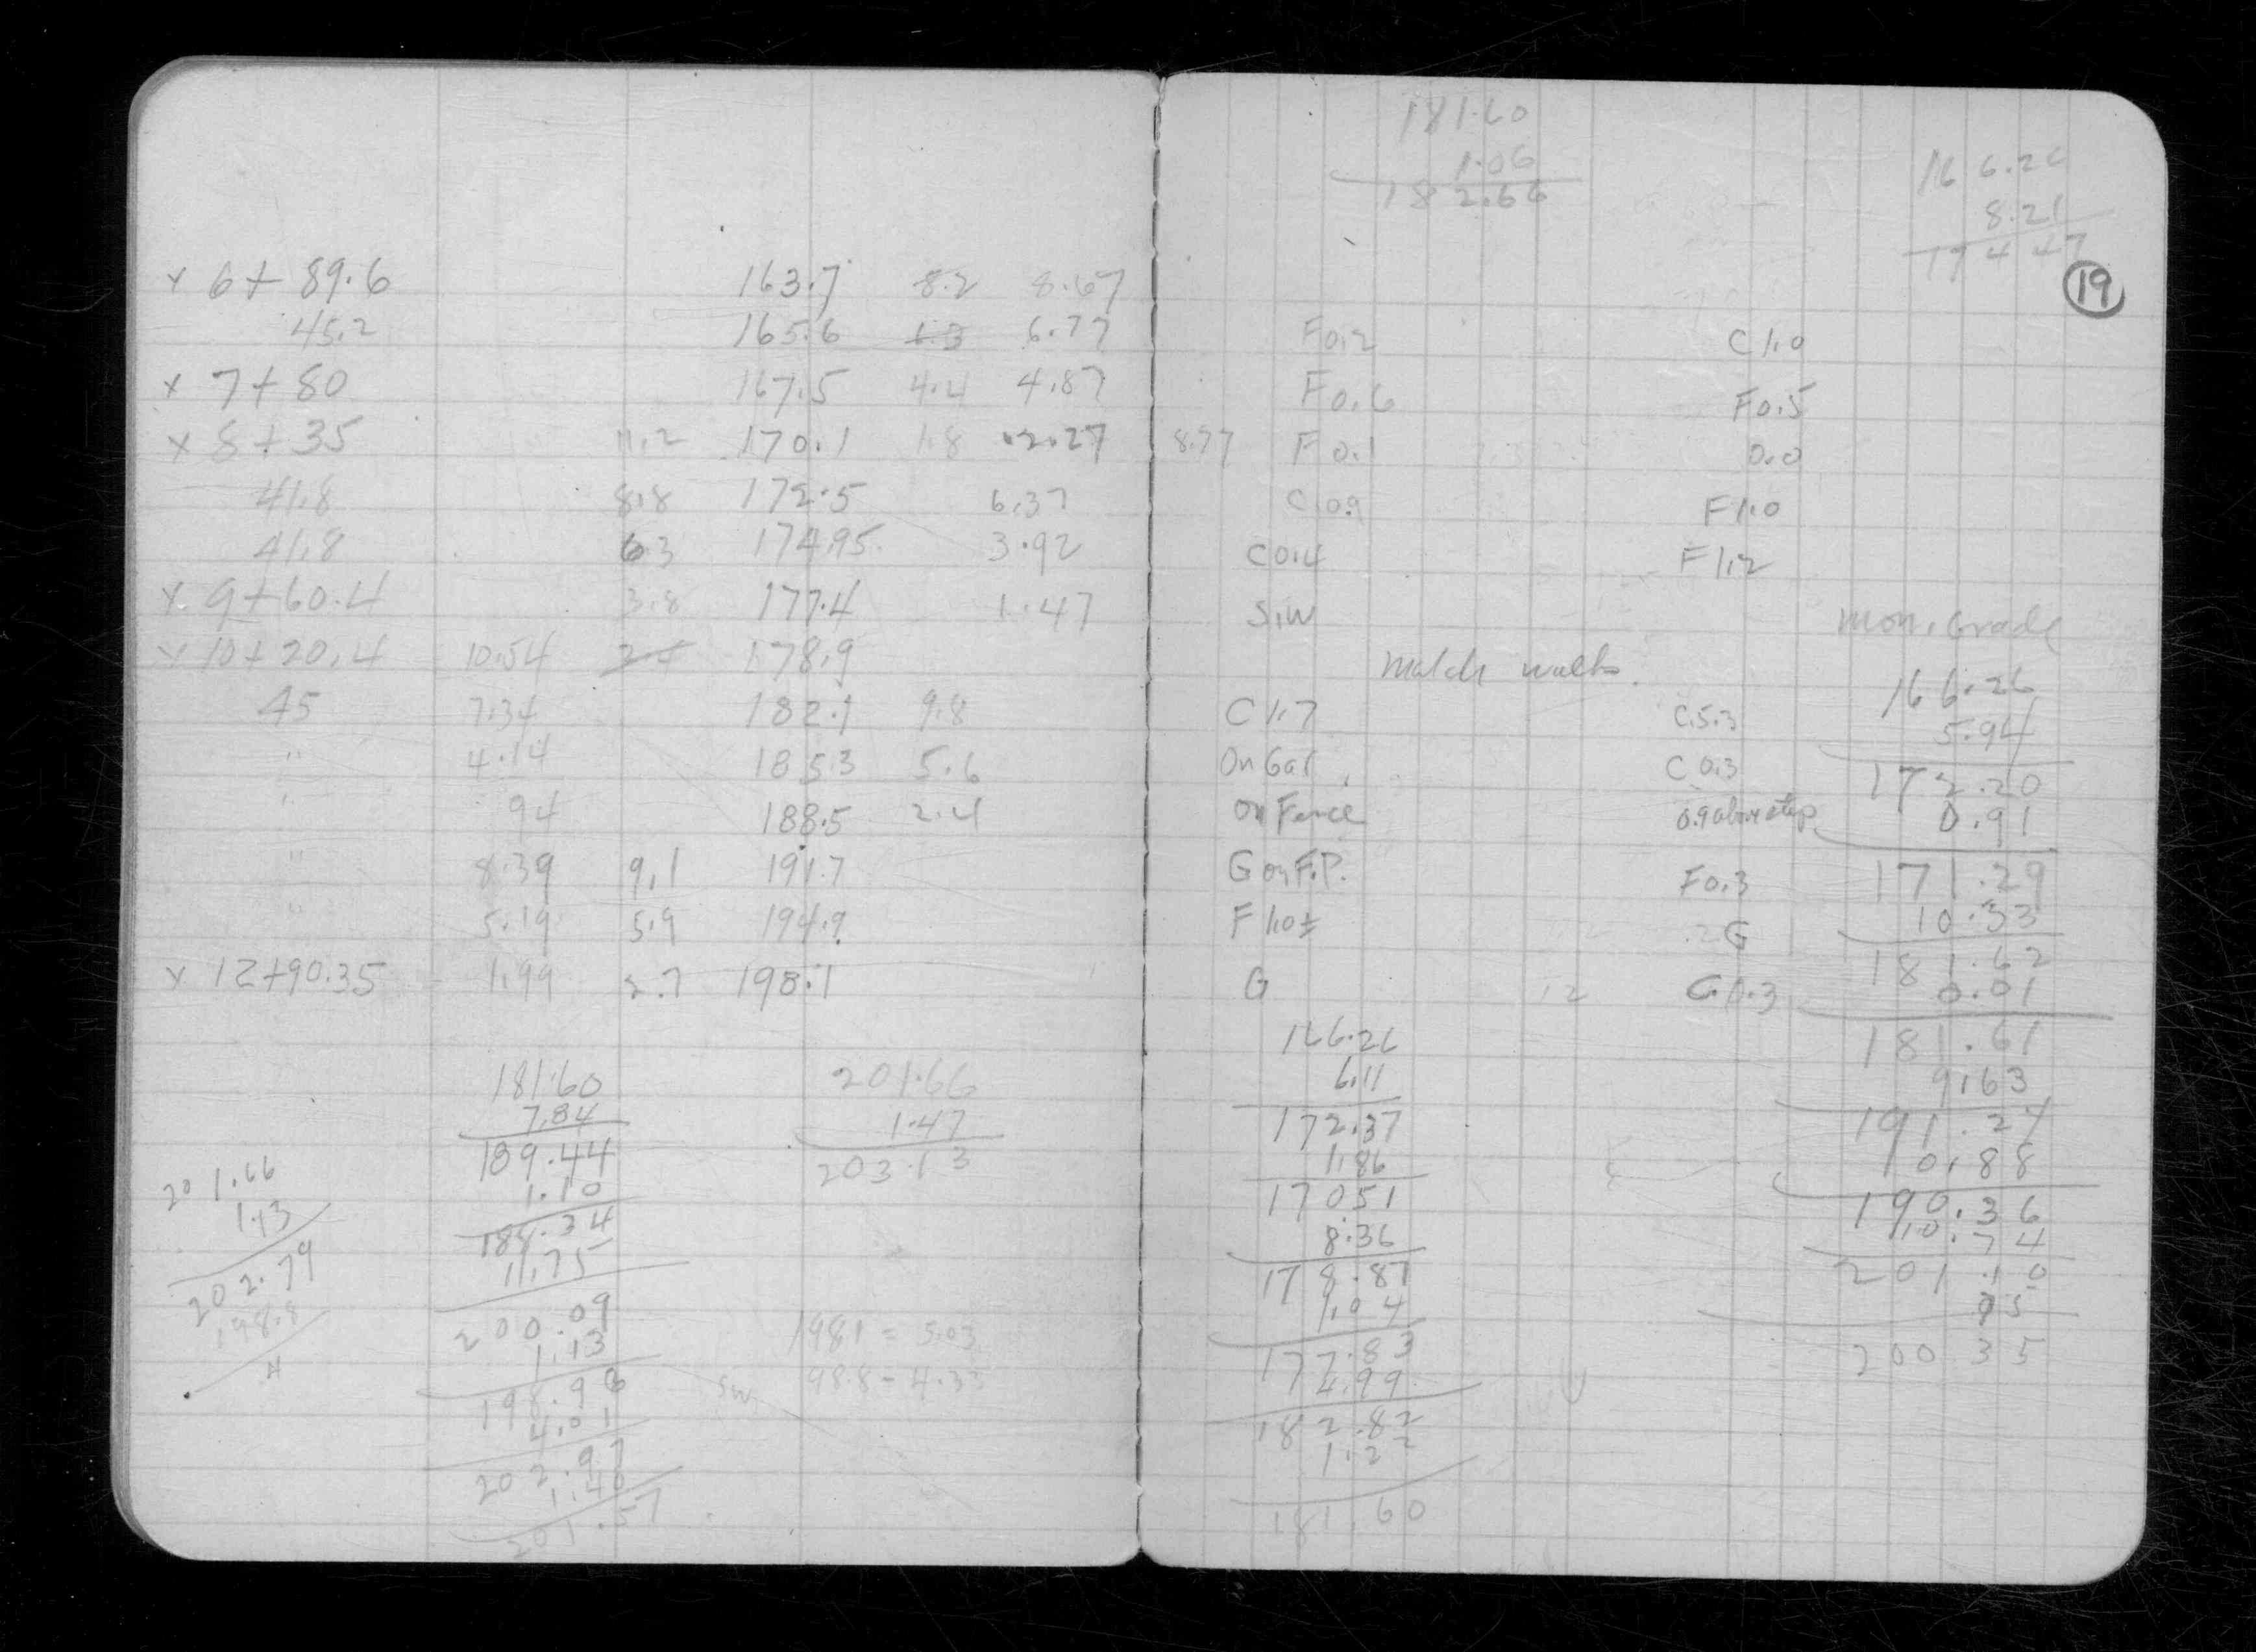 x 6+89.6 163.7 8.2 8.67
45.2 165.6 6.77
x 7+80 167.5 4.4 4.87
x 8+35 11.2 170.1 1.8 2.27
41.8 8.8 172.5 6.37
41.8 6.3 174.95 3.92
x 9+60.4 3.8 177.4 1.47
x 10+20.4 10.54 2.4 178.9
45 7.34 182.1 9.8
" 4.14 185.3 5.6
" 94 188.5 2.4
" 8.39 9.1 191.7
" 5.19 5.9 194.9
x 12+90.35 1.99 2.7 198.1
181.60
7.84
189.44
1.10
188.34
11.75
200.09
1.13
198.96
4.01
202.97
1.40
201.57
201.66
1.47
203.13
201.66
1.13
202.79
198.8
1981 = 5.03
SW 98.8 - 4.33
181.60
1.06
182.66
166.26
8.21
174 47
19
F0.2 C1.0
F0.6 F0.5
8.77 F0.1 0.0
C0.9 F1.0
C0.4 F1.2
S.W
Match walks.
C1.7 C.5.3
On Gar. C0.3
On Fence 0.9 above step
G on F.P. F0.3
F1.0± G
G C.0.3
166.26
6.11
172.37
1.86
170.51
8.36
178.87
1.04
177.83
4.99
182.82
1.22
181.60
Mon. Grade
166.26
5.94
172.20
0.91
171.29
10.33
181.62
0.01
181.61
9.63
191.24
0.88
190.36
10.74
201.10
75
200 35